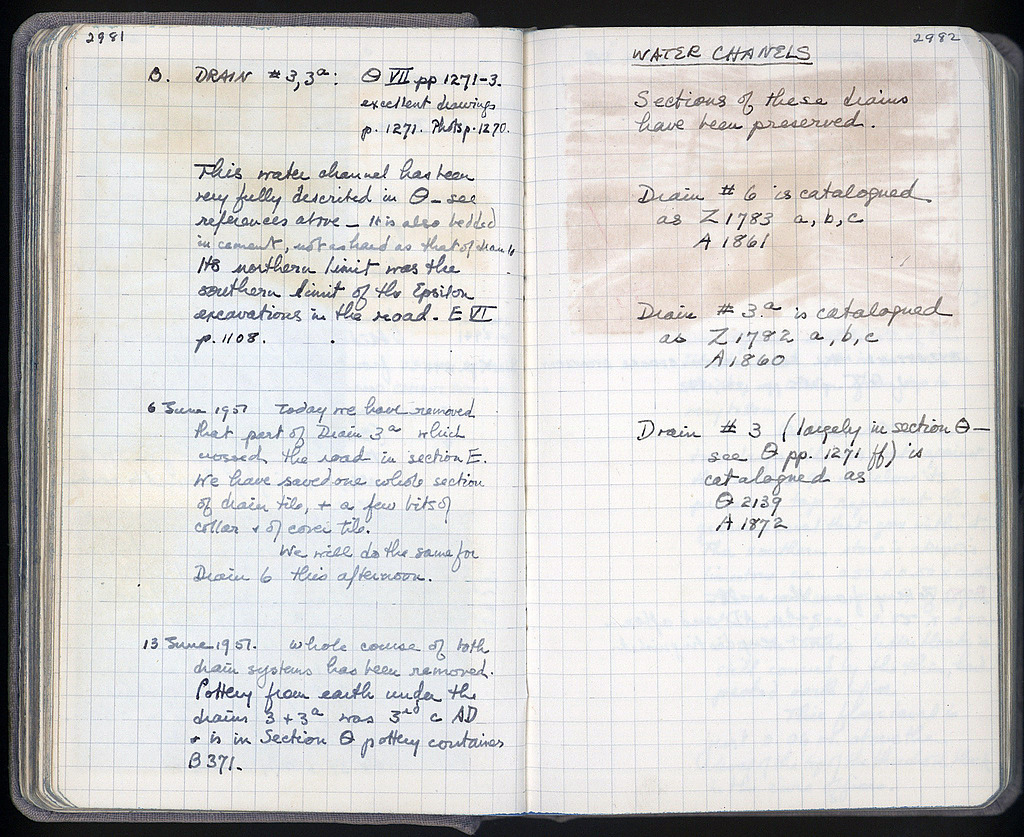 2981
B. DRAIN # 3, 3ª: Θ VII pp 1271-3.
excellent drawings
p. 1271. Photsp. 1270.
This water channel has been
very fully described in Θ – see
references above – It is also bedded
in cement, not as hard as that of drain 6
Its northern limit was the
southern limit of the Epsilon
excavations in the road. E VI
p. 1108.
6 June 1957 Today we have removed
that part of Drain 3ª which
crossed the road in section E.
We have saved one whole section
of drain tile, + a few bits of
collar + of cover tile.
We will do the same for
Drain 6 this afternoon.
13 June 1957. Whole course of both
drain systems has been removed.
Pottery from earth under the
drains 3 + 3ª was 3rd c AD
+ is in Section Θ pottery container
B 371.
2982
WATER CHANELS
Sections of these drains
have been preserved.
Drain # 6 is catalogued
as Z 1783 a, b, c
A 1861
Drain # 3.ª is catalogued
as Z 1782 a, b, c
A 1860
Drain # 3 (largely in section Θ –
see Θ pp. 1271 ff) is
catalogued as
Θ 2139
A 1872